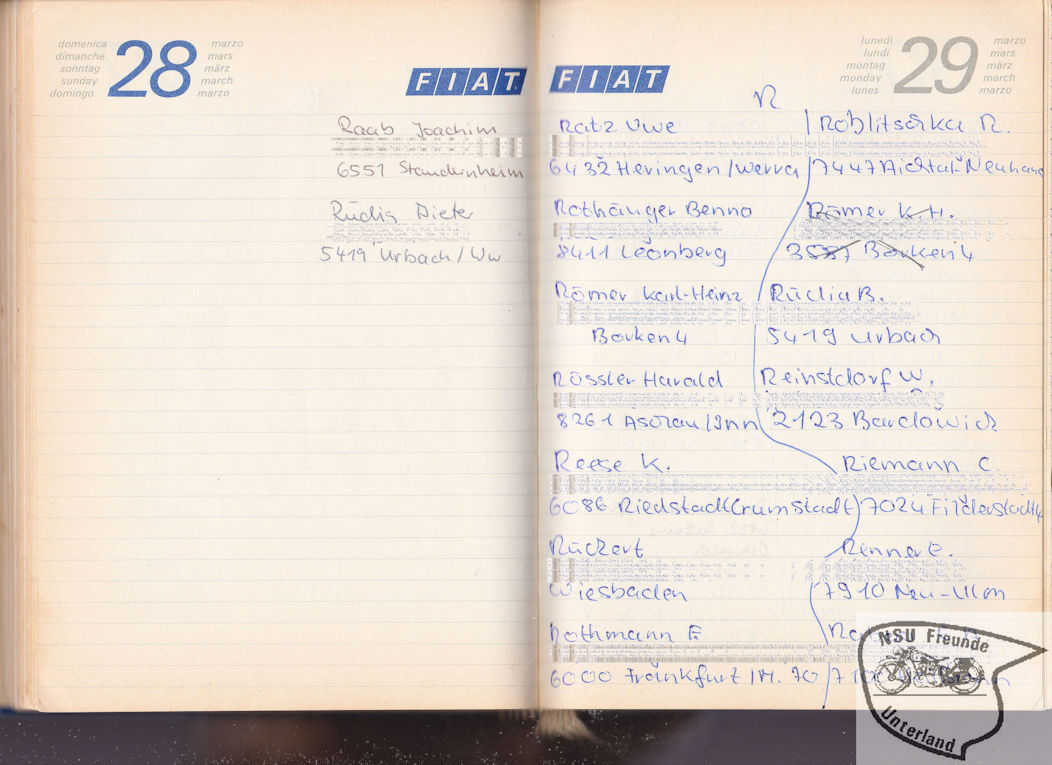 domenica
dimanche
sonntag
sunday
domingo
28
marzo
mars
märz
march
marzo
FIAT
Raab Joachim
6551 Staudernheim
Rüdig Dieter
5419 Urbach / Ww
FIAT
lunedì
lundi
montag
monday
lunes
29
marzo
mars
märz
march
marzo
R
Ratz Uwe
6432 Heringen / Werra
Rothänger Benno
8411 Leonberg
Römer Karl-Heinz
Borken 4
Rössler Harald
8261 Aschau / Inn
Reese K.
6086 Riedstadt (Crumstadt)
Rückert
Wiesbaden
Rothmann E
6000 Frankfurt / M. 70
Roblitschka R.
7447 Aichtal-Neuhaus
Römer K.H.
3587 Borken 4
Rüdig B.
5419 Urbach
Reinstdorf W.
2123 Bardowick
Riemann C.
7024 Filderstadt 4
Renner E.
7910 Neu-Ulm
NSU Freunde
Unterland